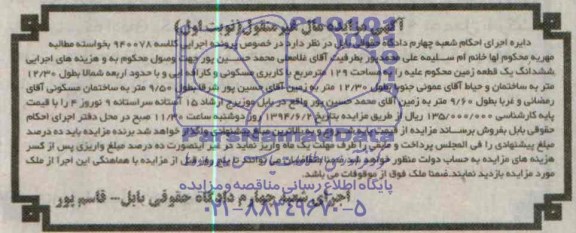 آگهی مزایده مال غیر منقول (نوبت اول)
دایره اجرای احکام شعبه چهارم دادگاه حقوقی بابل در نظر دارد در خصوص پرونده اجرایی کلاسه ۹۴۰۰۷۸ بخواسته مطالبه
مهریه محکوم لها خانم ام سلیمه علی محمدپور بطرفیت آقای غلامعلی محمد حسین پور جهت وصول محکوم به و هزینه های اجرایی
ششدانگ یک قطعه زمین محکوم علیه را به مساحت ۱۲۹ مترمربع با کاربری مسکونی و کارگاهی و با حدود اربعه شمالا بطول ۱۲/۳۰
متر به ساختمان و حیاط آقای عموئی جنوبا بطول ۱۲/۳۰ متر به زمین آقای حسین پور شرقا بطول ۹/۵۰ متر به ساختمان مسکونی آقای
رمضانی و غربا بطول ۹/۶۰ متر به زمین آقای محمد حسین پور واقع در بابل موزیرج ارشاد ۱۵ آستانه سراستانه ۹ نوروز ۴ را با قیمت
پایه کارشناسی ۱۳۵/۰۰۰/۰۰۰ ریال از طریق مزایده بتاریخ ۱۳۹۴/۶/۲ روز دوشنبه ساعت ۱۱/۳۰ صبح در محل دفتر اجرای احکام
حقوقی بابل بفروش برساند مزایده از قیمت پایه شروع و به بالاترین قیمت پیشنهادی واگذار خواهد شد برنده مزایده باید ده درصد
مبلغ پیشنهادی را فی المجلس پرداخت و مابقی را ظرف مهلت یک ماه واریز نماید در غیر اینصورت ده درصد مبلغ واریزی پس از کسر
هزینه های مزایده به حساب دولت منظور خواهد شد ضمنا متقاضیان می توانند تا پنج روز قبل از مزایده با هماهنگی این اجرا از ملک
مورد مزایده بازدید نمایند. ضمنا ملک فوق از موقوفات می باشد.
اجرای شعبه چهارم دادگاه حقوقی بابل -- قاسم پور
ParsNamadData
پایگاه اطلاع رسانی مناقصه و مزایده
۰۲۱-۸۸۳۴۹۶۷۰-۵